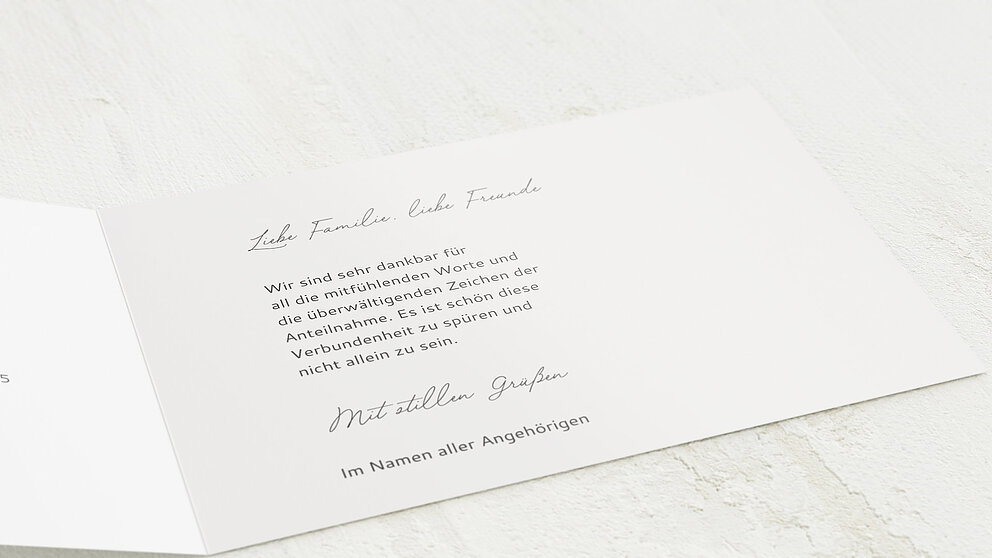 Liebe Familie, liebe Freunde
Wir sind sehr dankbar für
all die mitfühlenden Worte und
die überwältigenden Zeichen der
Anteilnahme. Es ist schön diese
Verbundenheit zu spüren und
nicht allein zu sein.
Mit stillen Grüßen
Im Namen aller Angehörigen
5